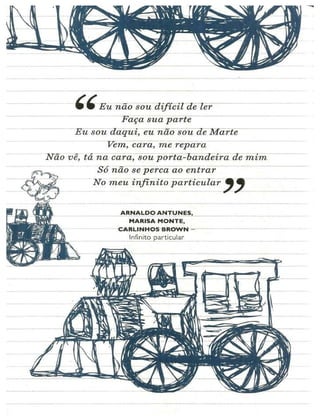 “ Eu não sou difícil de ler
Faça sua parte
Eu sou daqui, eu não sou de Marte
Vem, cara, me repara
Não vê, tá na cara, sou porta-bandeira de mim
Só não se perca ao entrar
No meu infinito particular ”
ARNALDO ANTUNES,
MARISA MONTE,
CARLINHOS BROWN –
Infinito particular